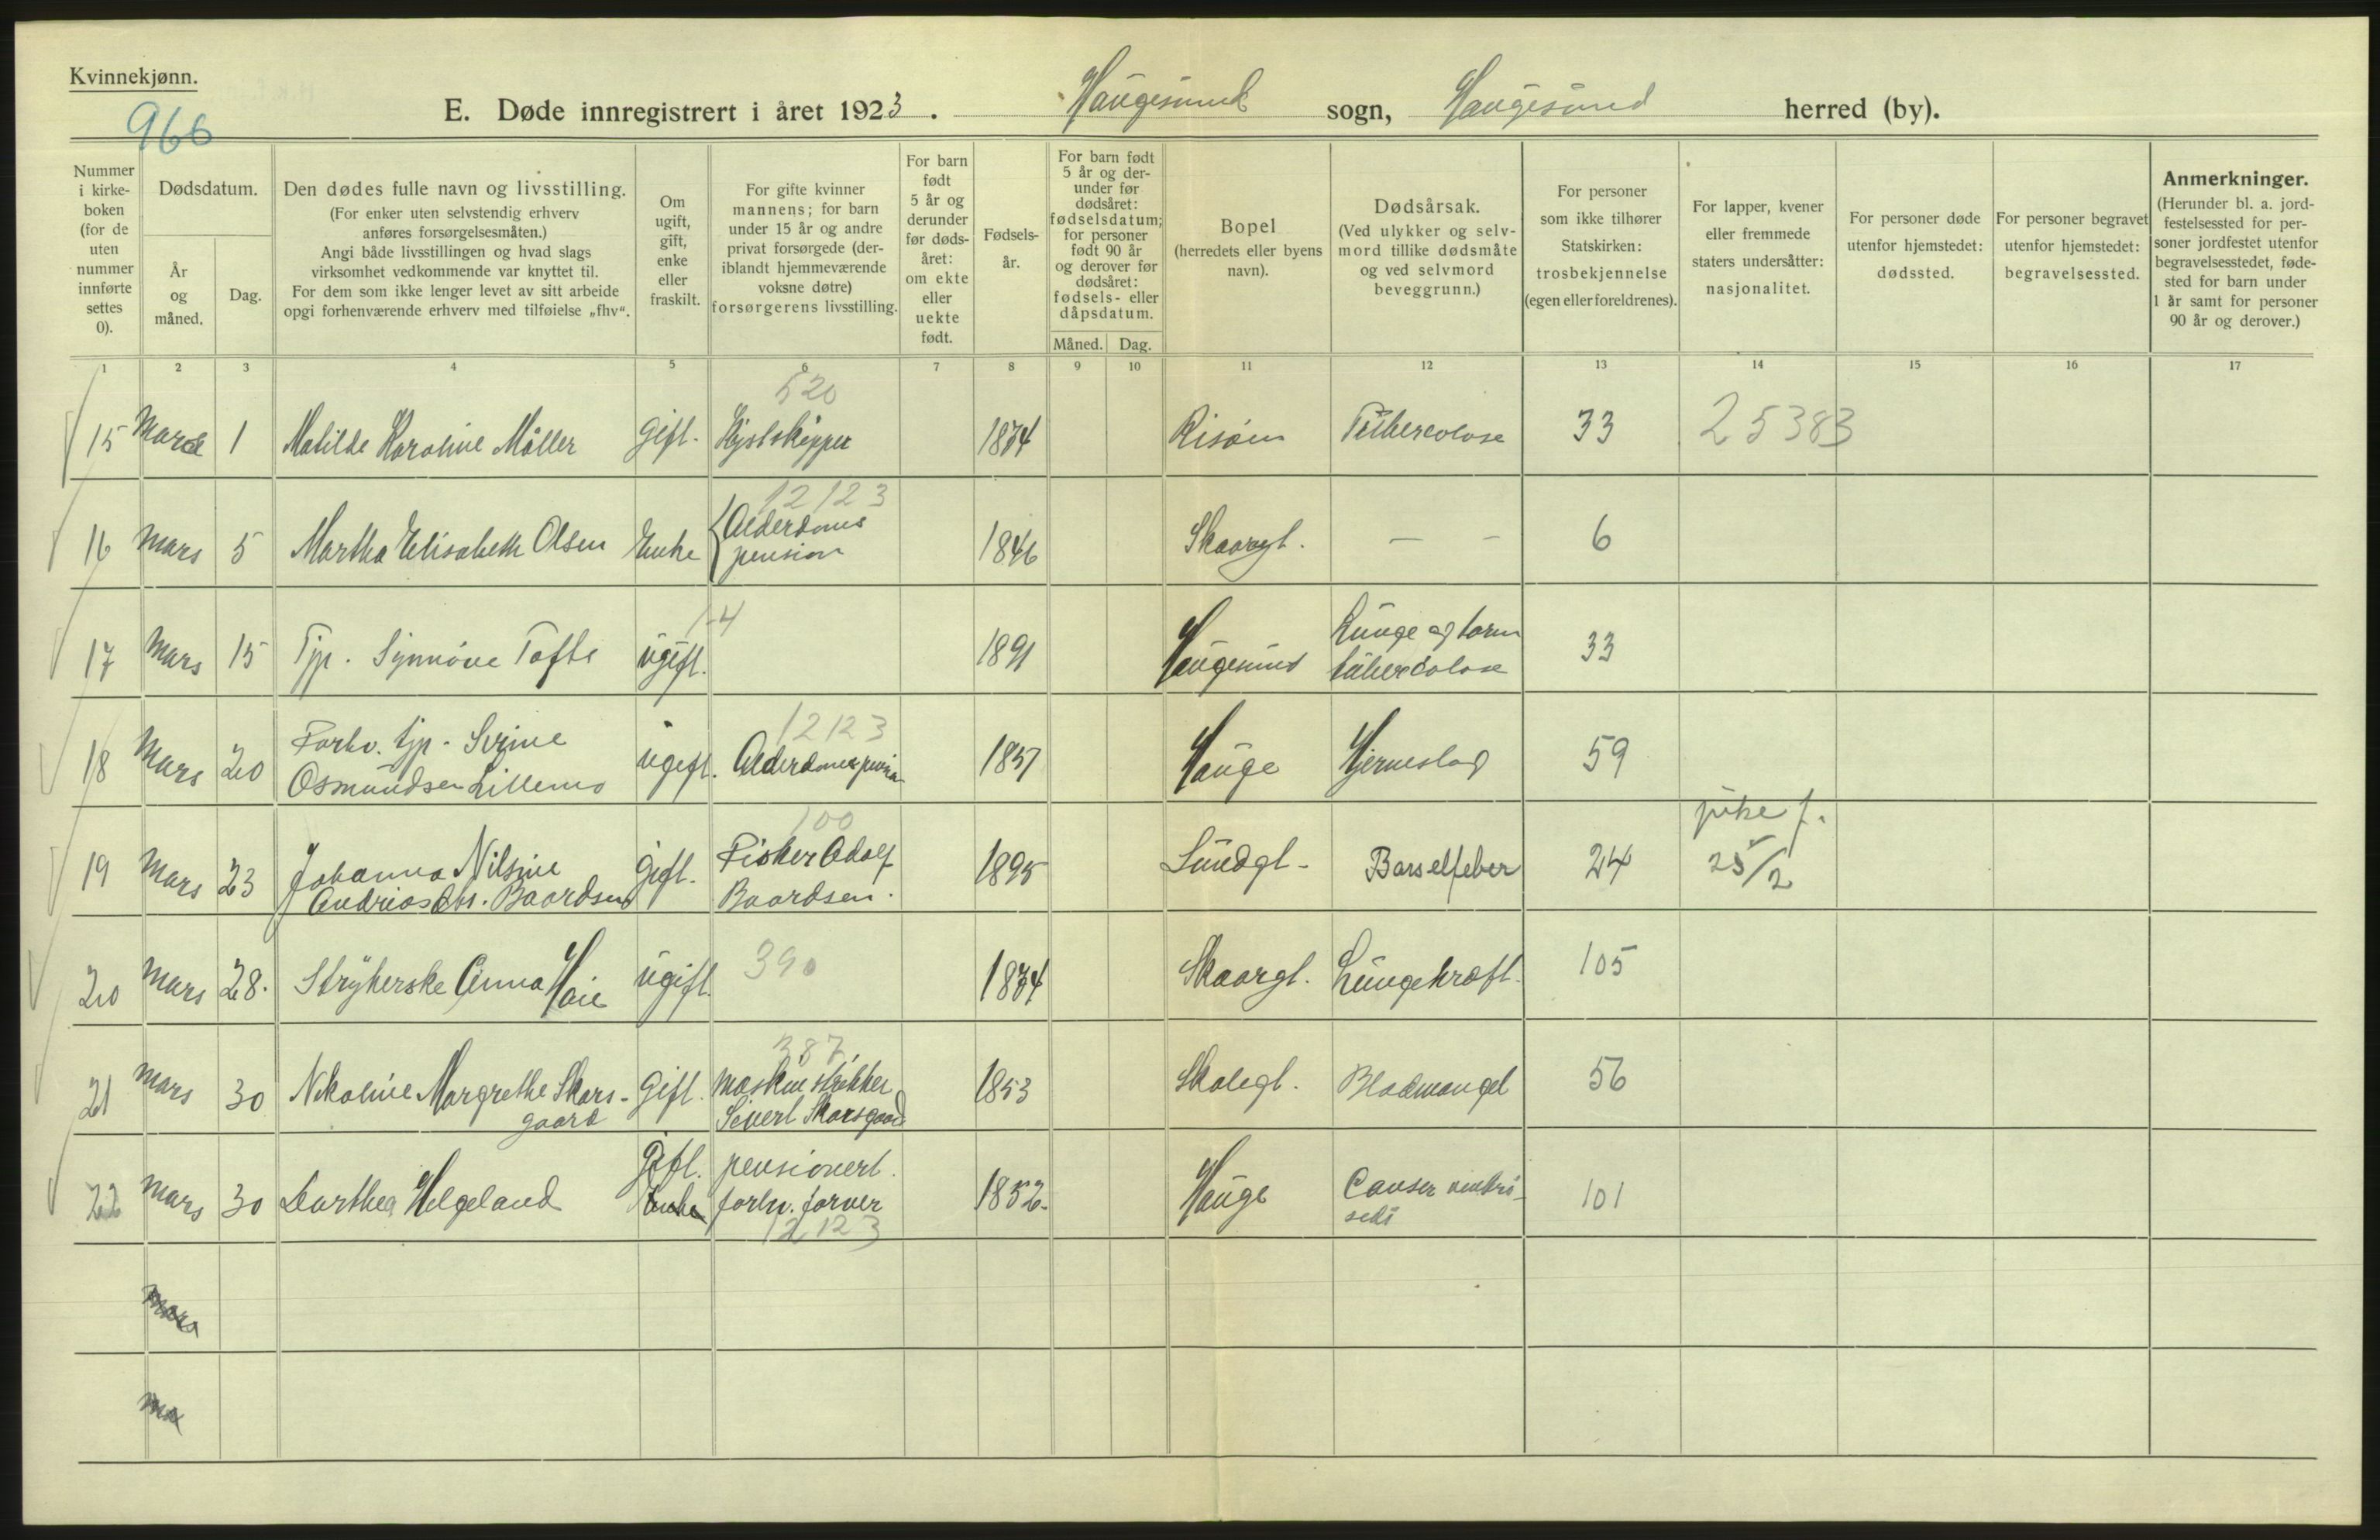 Kvinnekjønn.
966
E. Døde innregistrert i året 1923. Haugesund sogn, Haugesund herred (by).
Nummer i kirke-boken (for de uten nummer innførte settes 0).
Dødsdatum.
År og måned.
Dag.
Den dødes fulle navn og livsstilling.
(For enker uten selvstendig erhverv
anføres forsørgelsesmåten.)
Angi både livsstillingen og hvad slags
virksomhet vedkommende var knyttet til.
For dem som ikke lenger levet av sitt arbeide
opgi forhenværende erhverv med tilføielse „fhv“.
Om ugift, gift, enke eller fraskilt.
For gifte kvinner
mannens; for barn
under 15 år og andre
privat forsørgede (der-
iblandt hjemmeværende
voksne døtre)
forsørgerens livsstilling.
For barn født 5 år og derunder før døds-året: om ekte eller uekte født.
Fødsels-år.
For barn født
5 år og der-
under før
dødsåret:
fødselsdatum;
for personer
født 90 år
og derover før
dødsåret:
fødsels- eller
dåpsdatum.
Måned. Dag.
Bopel
(herredets eller byens
navn).
Dødsårsak.
(Ved ulykker og selv-
mord tillike dødsmåte
og ved selvmord
beveggrunn.)
For personer
som ikke tilhører
Statskirken:
trosbekjennelse
(egen eller foreldrenes).
For lapper, kvener
eller fremmede
staters undersåtter:
nasjonalitet.
For personer døde
utenfor hjemstedet:
dødssted.
For personer begravet
utenfor hjemstedet:
begravelsessted.
Anmerkninger.
(Herunder bl. a. jord-
festelsessted for per-
soner jordfestet utenfor
begravelsesstedet, føde-
sted for barn under
1 år samt for personer
90 år og derover.)
1 2 3 4 5 6 7 8 9 10 11 12 13 14 15 16 17
520
15 Mars 1 Matilde Karoline Møller Gift. Kystskipper 1874 Risøen Tuberculose 33 25383
12123
16 Mars 5 Martha Elisabeth Olsen Enke Alderdoms pension 1846 Skaargt. — — 6
1-4
17 Mars 15 Tjp. Synnøve Tofte ugift. 1891 Haugesund Lunge og tarm tuberculose 33
12123
18 Mars 20 Forhv. tjp. Serine Osmundsen Lillemo ugift. Alderdomspension 1837 Hauge Hjerneslag 59
100
19 Mars 23 Johanna Nilsine Andreasdtr. Baardsen Gift. Fisker Adolf Baardsen. 1895 Lundgt. Barselfeber 24 pike f. 25/2
20 Mars 28. Strykerske Anna Haie ugift. 390 1874 Skaargt. Lungekræft. 105
387
21 Mars 30 Nikoline Margrethe Skarsgaard Gift. Maskinstrikker Sivert Skarsgaard 1853 Skolegt. Blodmangel 56
22 Mars 30 Dorthea Helgeland Gift. Enke pensionert forhv. farver 1852. Hauge Canser ventri- 101
12123